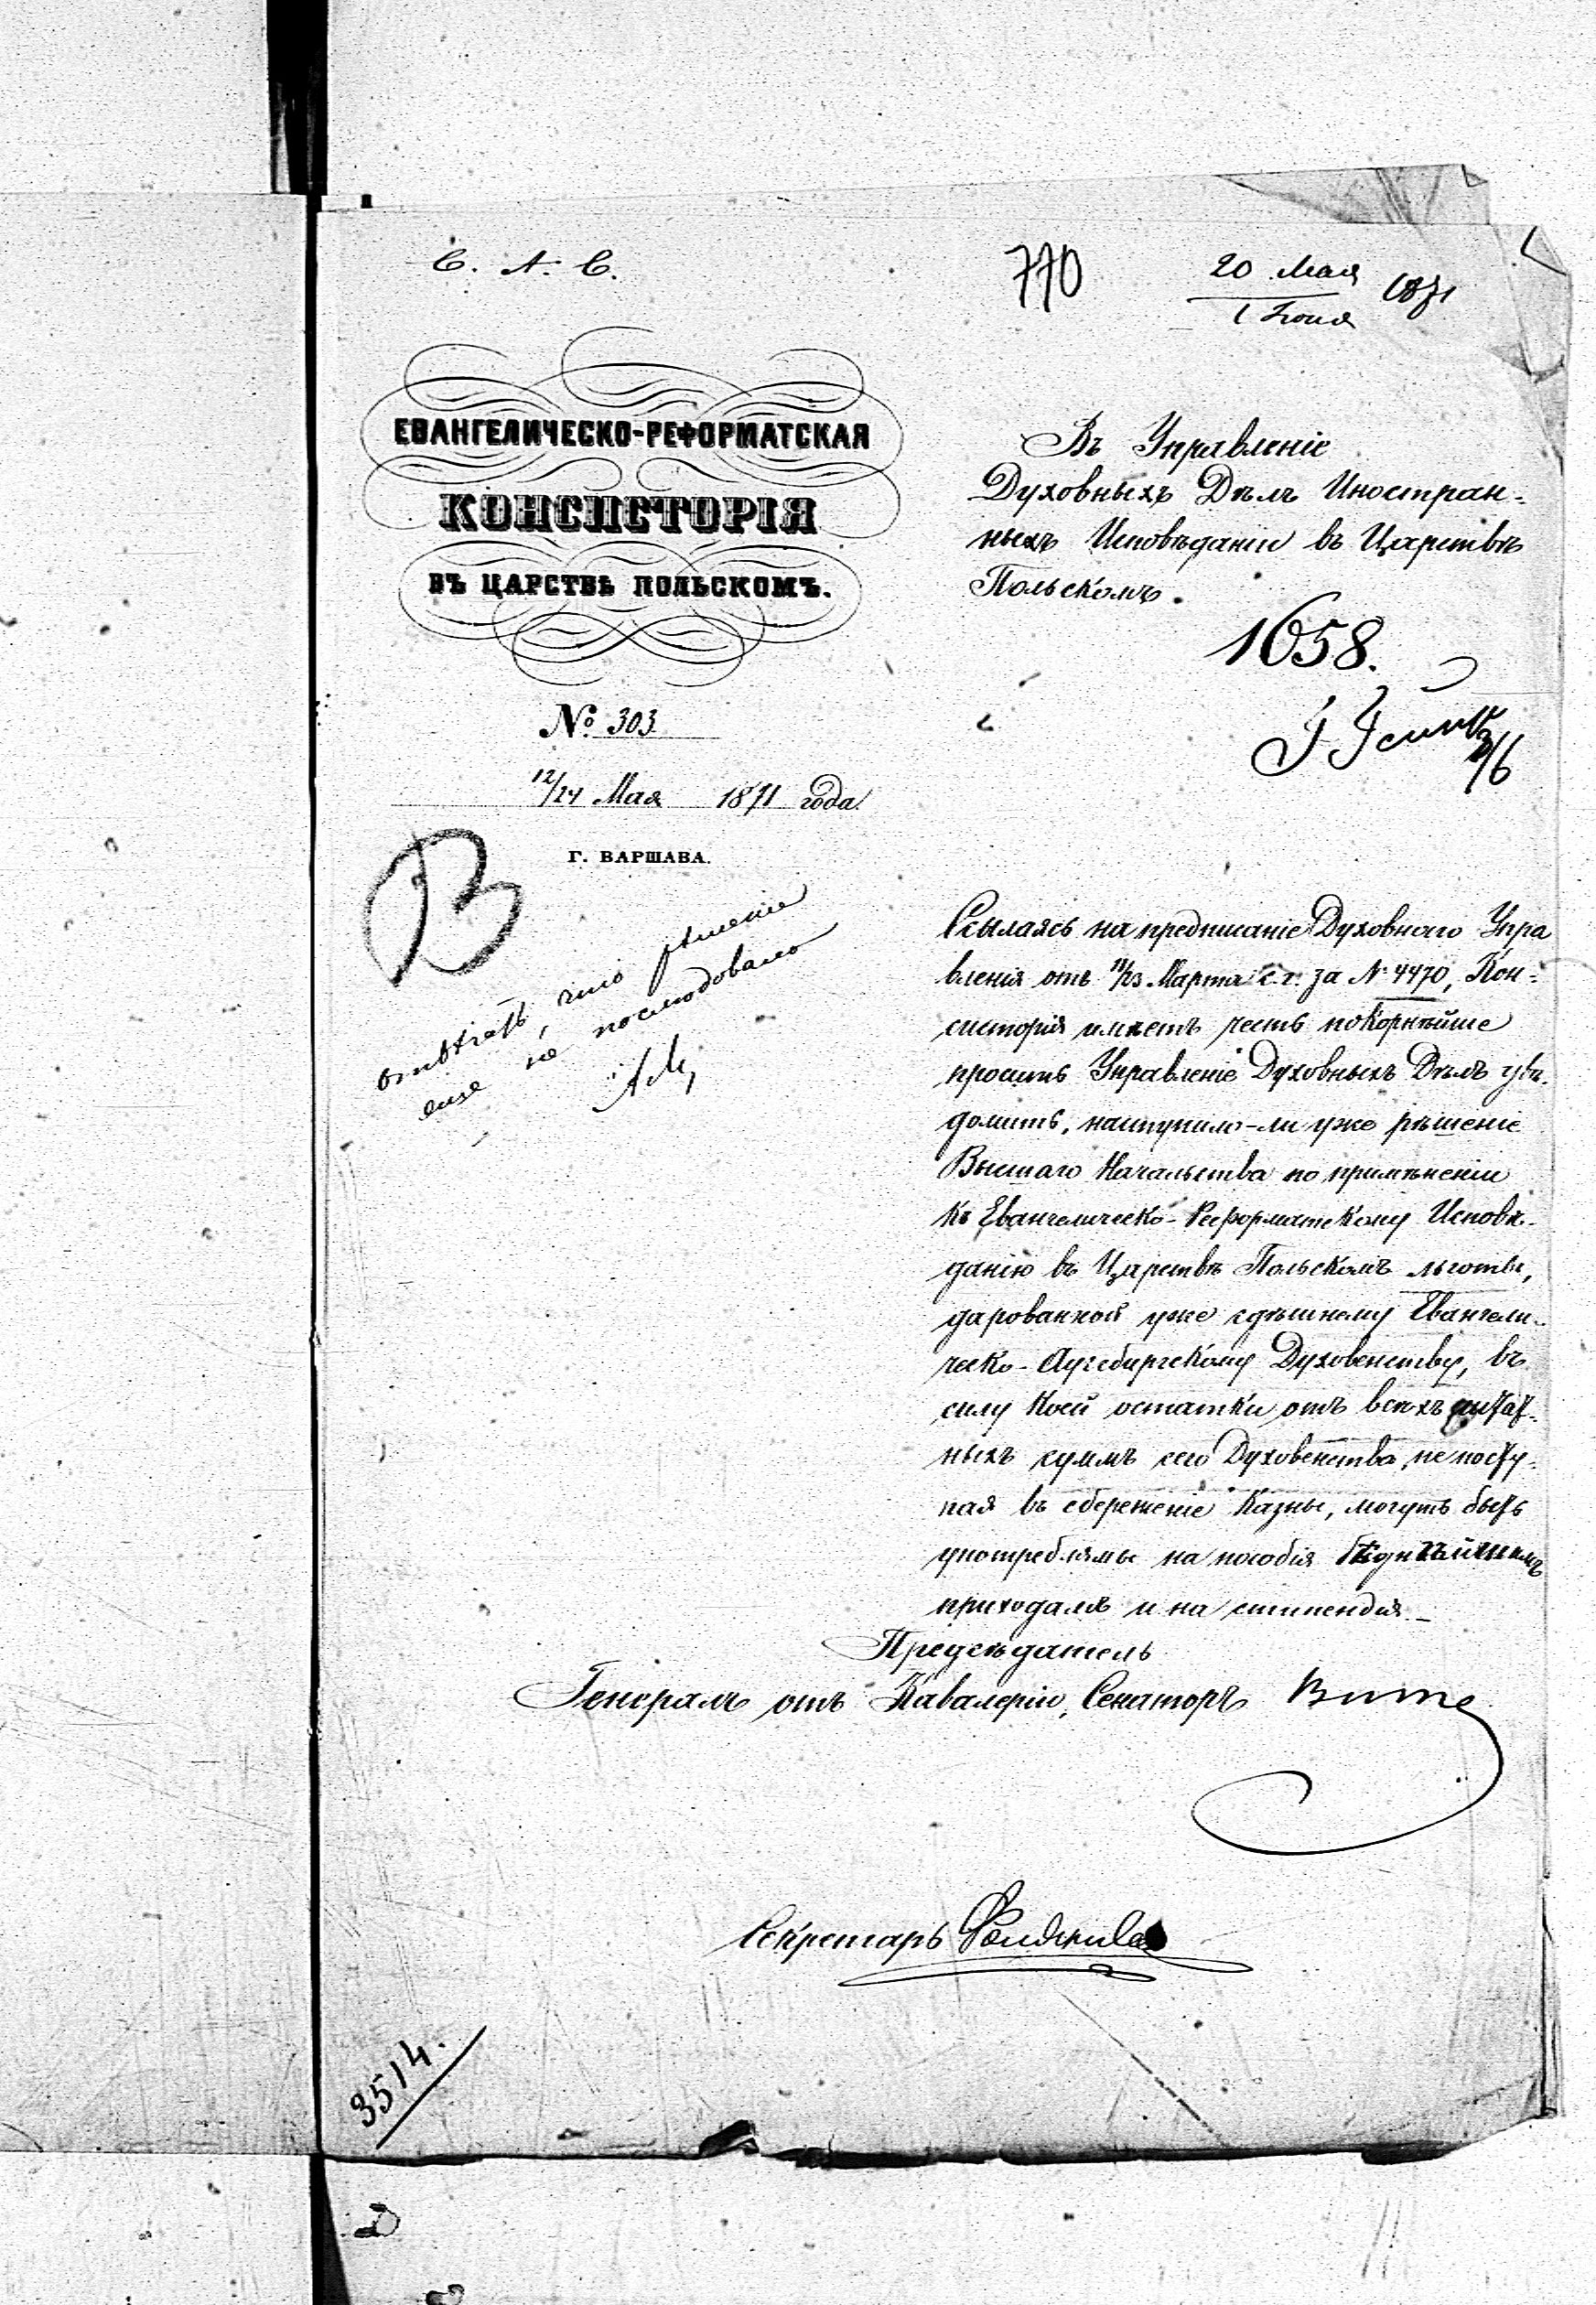 С. А. С.
770
20 Мая
1 Іюня
1871
ЕВАНГЕЛИЧЕСКО-РЕФОРМАТСКАЯ
КОНСИСТОРІЯ
ВЪ ЦАРСТВѢ ПОЛЬСКОМЪ.
№ 303
12/24 Мая 1871 года
Г. ВАРШАВА.
В
отвѣчать, что рѣшеніе
еще не послѣдовало
Въ Управленіе
Духовныхъ Дѣлъ Иностран-
ныхъ Исповѣданій въ Царствѣ
Польскомъ.
1658.
Ссылаясь на предписаніе Духовнаго Упра
вленія отъ 11/23 Марта с. г. за № 4470, Кон-
систорія имѣетъ честь покорнѣйше
просить Управленіе Духовныхъ Дѣлъ увѣ-
домить, наступило-ли уже рѣшеніе
Высшаго Начальства по примѣненіи
къ Евангелическо-Реформатскому Исповѣ-
данію въ Царствѣ Польскомъ льготы,
дарованной уже здѣшнему Евангели-
ческо-Аугсбургскому Духовенству, въ
силу коей остатки отъ всѣхъ штат-
ныхъ суммъ сего Духовенства, не посту-
пая въ сбереженіе Казны, могутъ быть
употребляемы на пособія бѣднѣйшимъ
приходамъ и на стипендія.
Предсѣдатель
Генералъ отъ Кавалеріи, Сенаторъ Витте
Секретарь
3514.